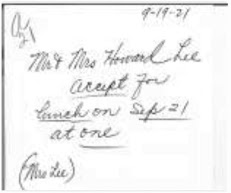 9-19-21
Mr & Mrs Howard Lee
accept for
lunch on Sep 21
at one
(Mrs Lee)